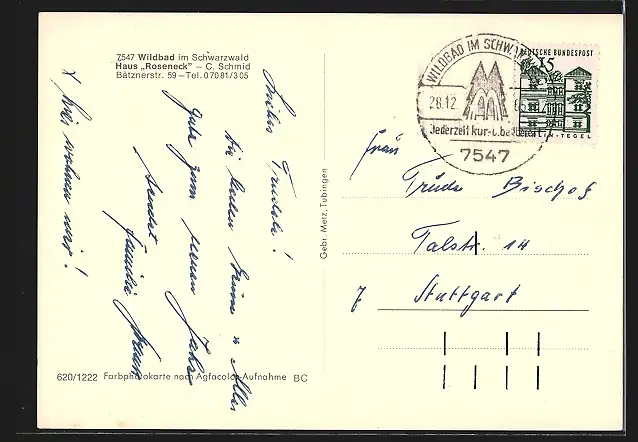 7547 Wildbad im Schwarzwald
Haus „Roseneck" – C. Schmid
Bätznerstr. 59 – Tel. 07081/305
Liebes Trudele!
Die besten Grüße u. Alles
Gute zum neuen Jahre
sendet
Familie
x hier wohnen wir!
620/1222 Farbphotokarte nach Agfacolor-Aufnahme BC
Gebr. Metz, Tübingen
WILDBAD IM SCHW
28.12.
Jederzeit kur- u. badebereit
7547
DEUTSCHE BUNDESPOST
15
N-TEGEL
Frau
Trude Bischof
Talstr. 14
7 Stuttgart